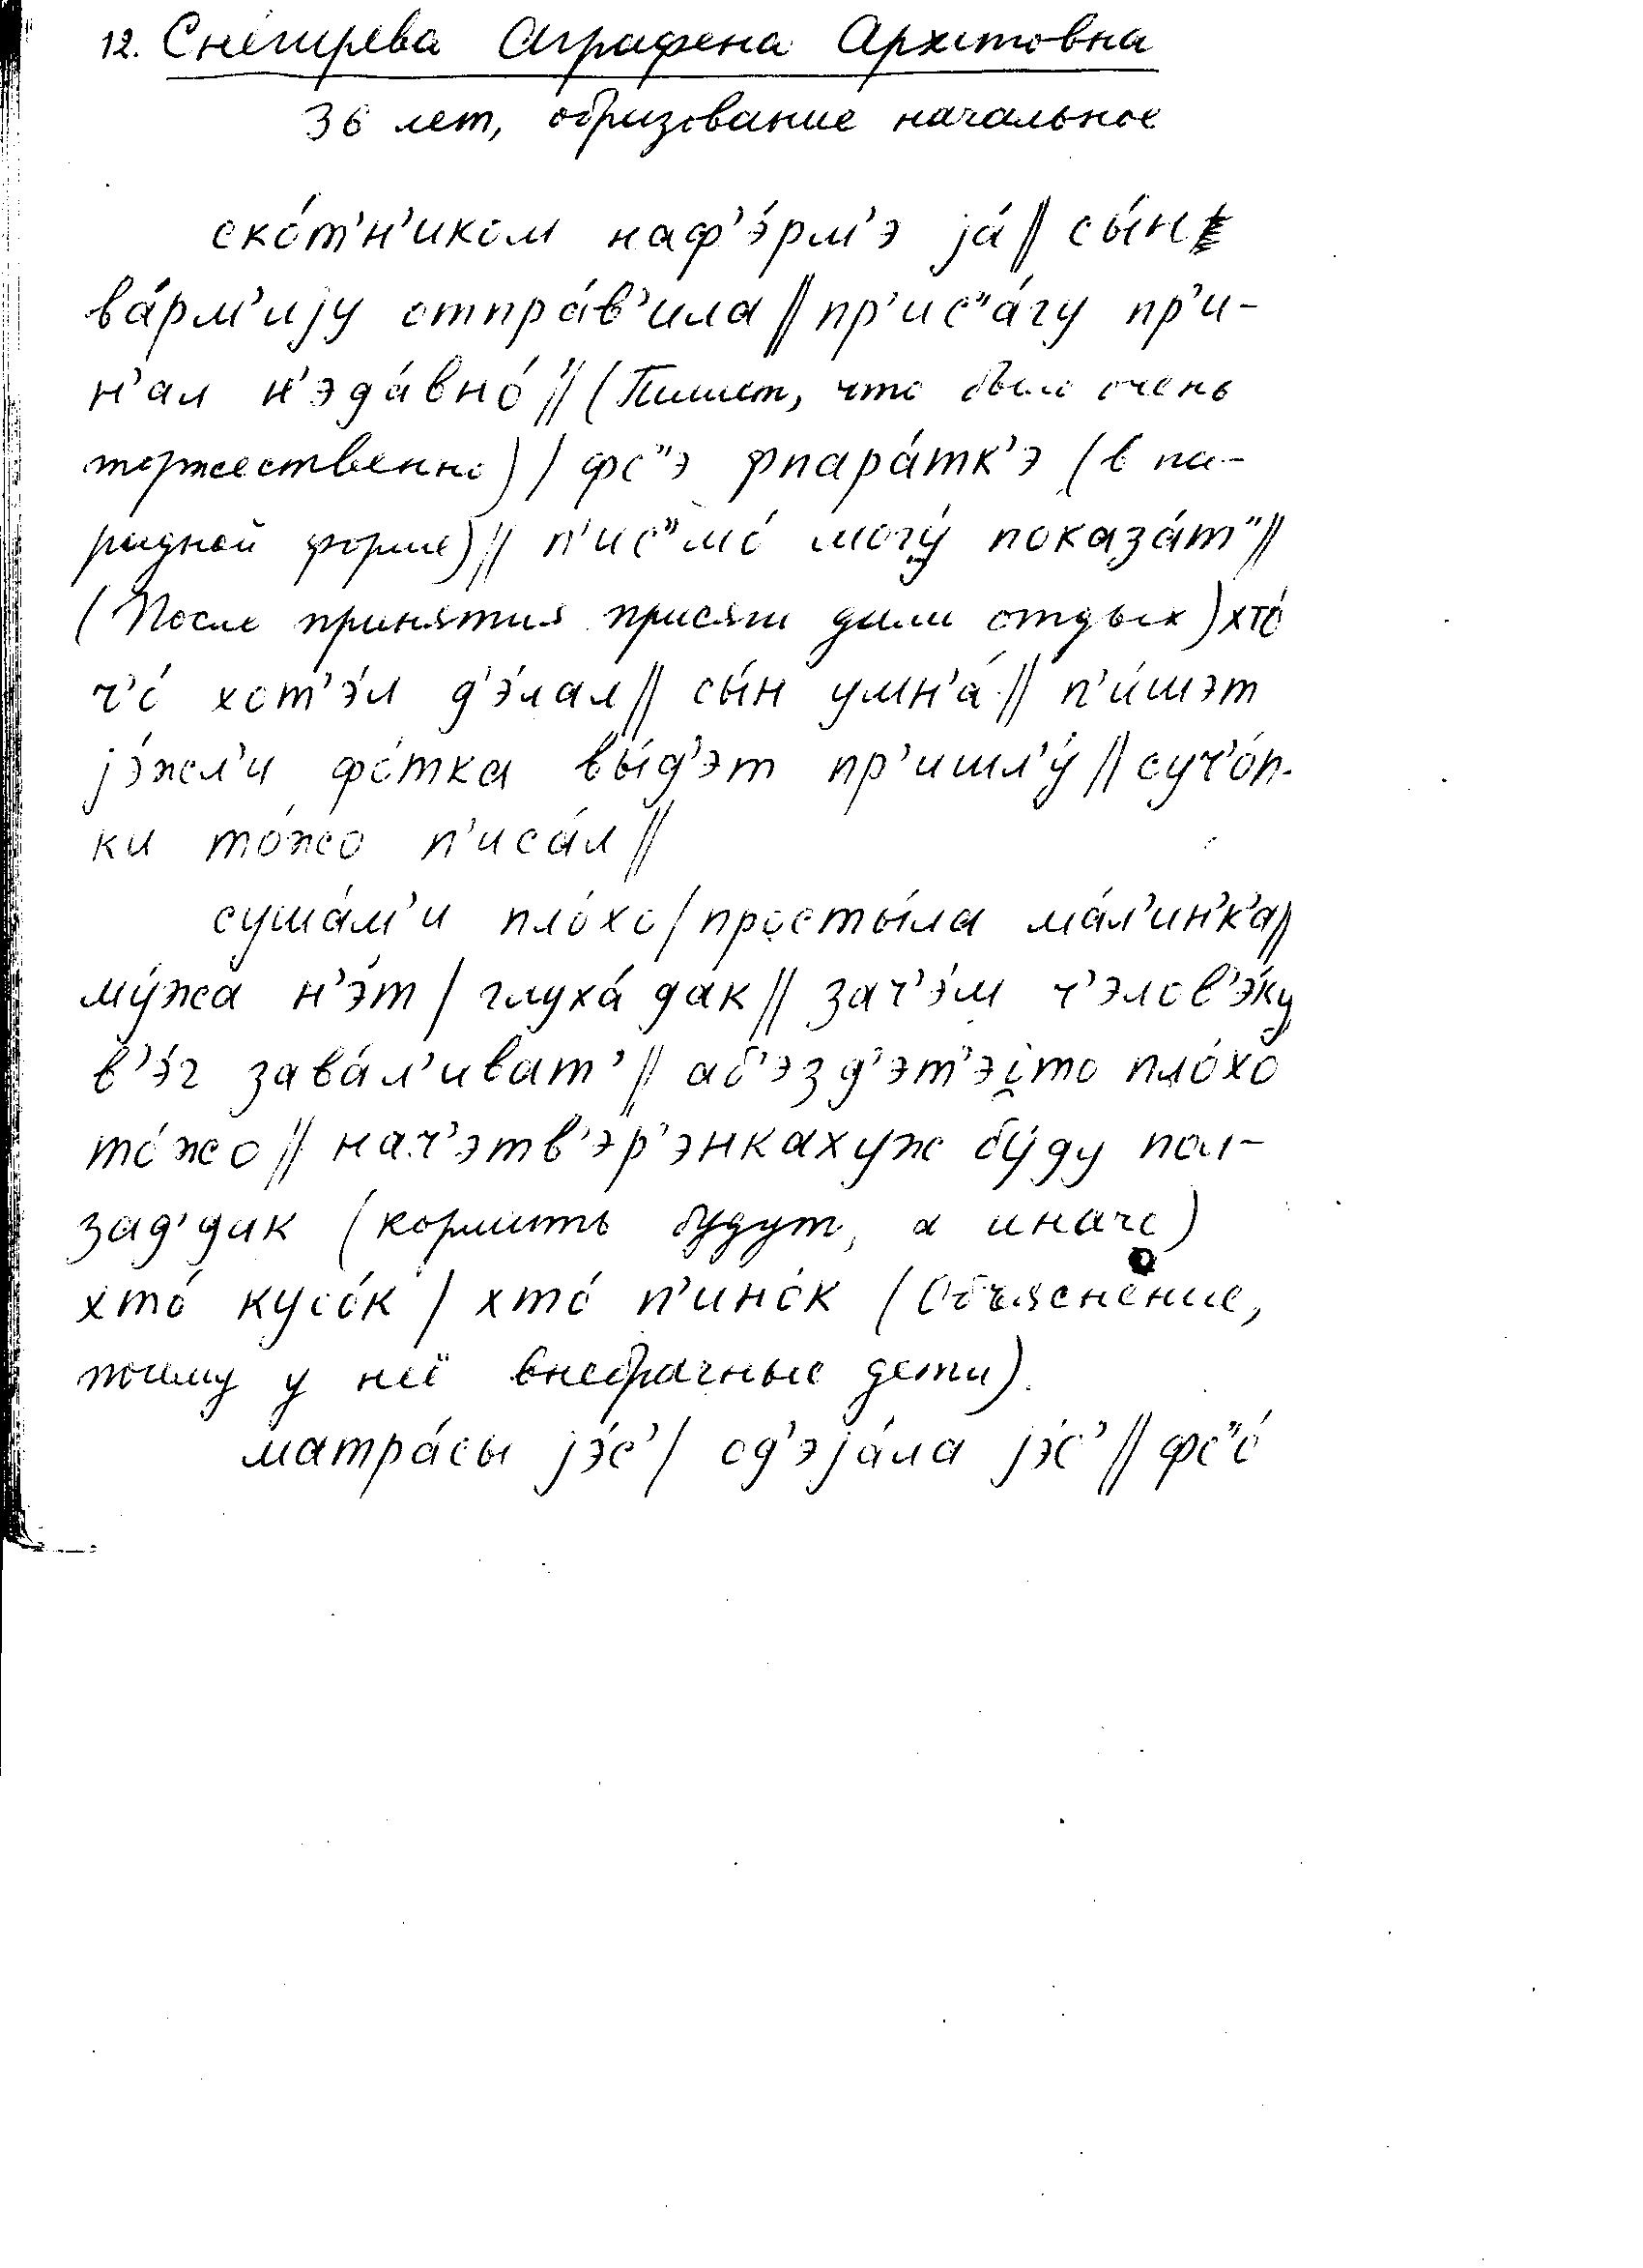 12. Снегирева Аграфена Архитовна
36 лет, образование начальное
ско́т'н'иком наф'э́рм'э jа́ // сы́н
ва́рм'иjу отпра́в'ила // пр'ис"а́гу пр'и-
н'ал н'эда́вно́ // (Пишет, что было очень
торжественно) / фс"э фпара́тк'э (в па-
радной форме) // п'ис"мо́ могу́ показа́т" //
(После принятия присяги дали отдых) хто́
ч'о́ хот'э́л д'э́лал // сы́н умн'а́ // п'и́шэт
jэ́жл'и фо́тка вы́д'эт пр'ишл'у́ // суч'о́п-
ки то́жо п'иса́л //
суша́м'и пло́хо / просты́ла ма́л'ин'к'а //
му́жа н'э́т / глуха́ дак // зач'э́м ч'элов'э́ку
в'э́г зава́л'иват' // аб'эзд'эт'эįто пло́хо
то́жо // нач'этв'эр'энкахуж бу́ду пол-
зад'дак (кормить будут, а иначе)
хто́ кусо́к / хто́ п'ино́к (Объяснение,
почему у неё внебрачные дети).
матра́сы jэ́с' / од'эjа́ла jэ́с' // фс"о́